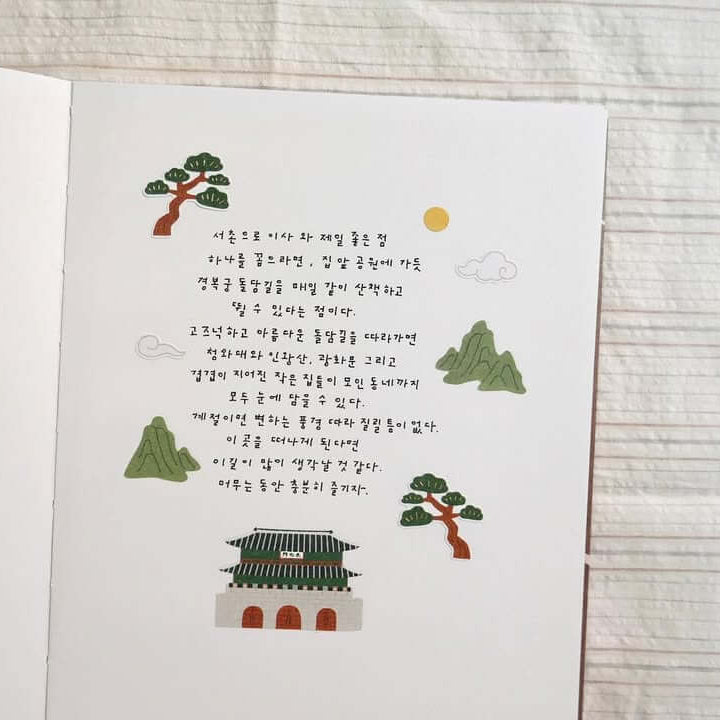 서촌으로 이사 와 제일 좋은 점
하나를 꼽으라면, 집 앞 공원에 가듯
경복궁 돌담길을 매일 같이 산책하고
뛸 수 있다는 점이다.
고즈넉하고 아름다운 돌담길을 따라가면
청와대와 인왕산, 광화문 그리고
겹겹이 지어진 작은 집들이 모인 동네까지
모두 눈에 담을 수 있다.
계절이면 변하는 풍경 따라 질릴 틈이 없다.
이 곳을 떠나게 된다면
이길이 많이 생각날 것 같다.
머무는 동안 충분히 즐기자.